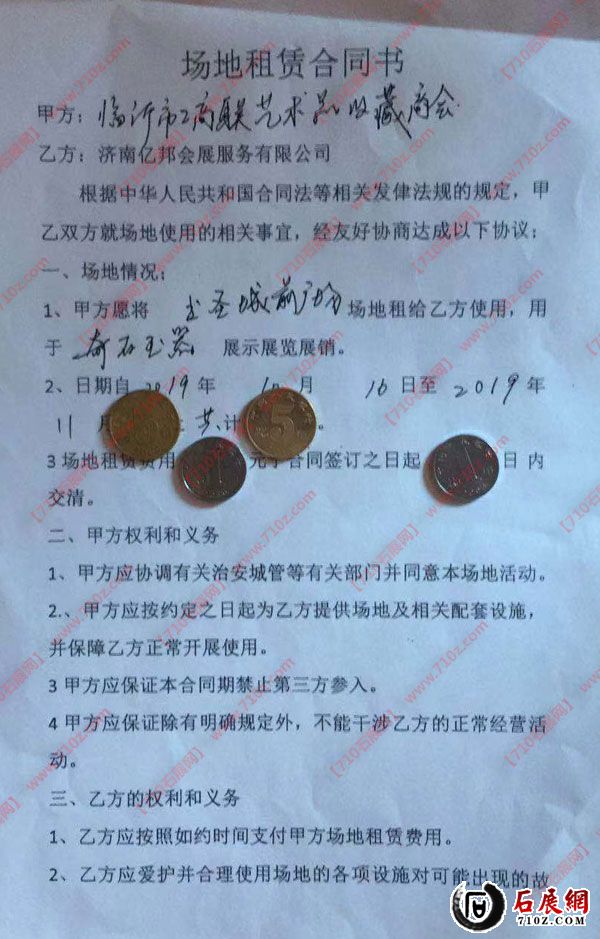 场地租赁合同书
甲方：临沂市工商联艺术品收藏商会
乙方：济南亿邦会展服务有限公司
根据中华人民共和国合同法等相关发律法规的规定，甲
乙双方就场地使用的相关事宜，经友好协商达成以下协议；
一、场地情况；
1、甲方愿将 书圣城前广场 场地租给乙方使用，用
于 奇石玉器 展示展览展销。
2、日期自 2019 年 10 月 16 日至 2019 年
11 月 共计 。
3 场地租赁费用 元于合同签订之日起 日 内
交清。
二、甲方权利和义务
1、甲方应协调有关治安城管等有关部门并同意本场地活动。
2.、甲方应按约定之日起为乙方提供场地及相关配套设施，
并保障乙方正常开展使用。
3 甲方应保证本合同期禁止第三方参入。
4 甲方应保证除有明确规定外，不能干涉乙方的正常经营活
动。
三、乙方的权利和义务
1、乙方应按照如约时间支付甲方场地租赁费用。
2、乙方应爱护并合理使用场地的各项设施对可能出现的故
石展網
710z.com
【710石展网】 www.710z.com